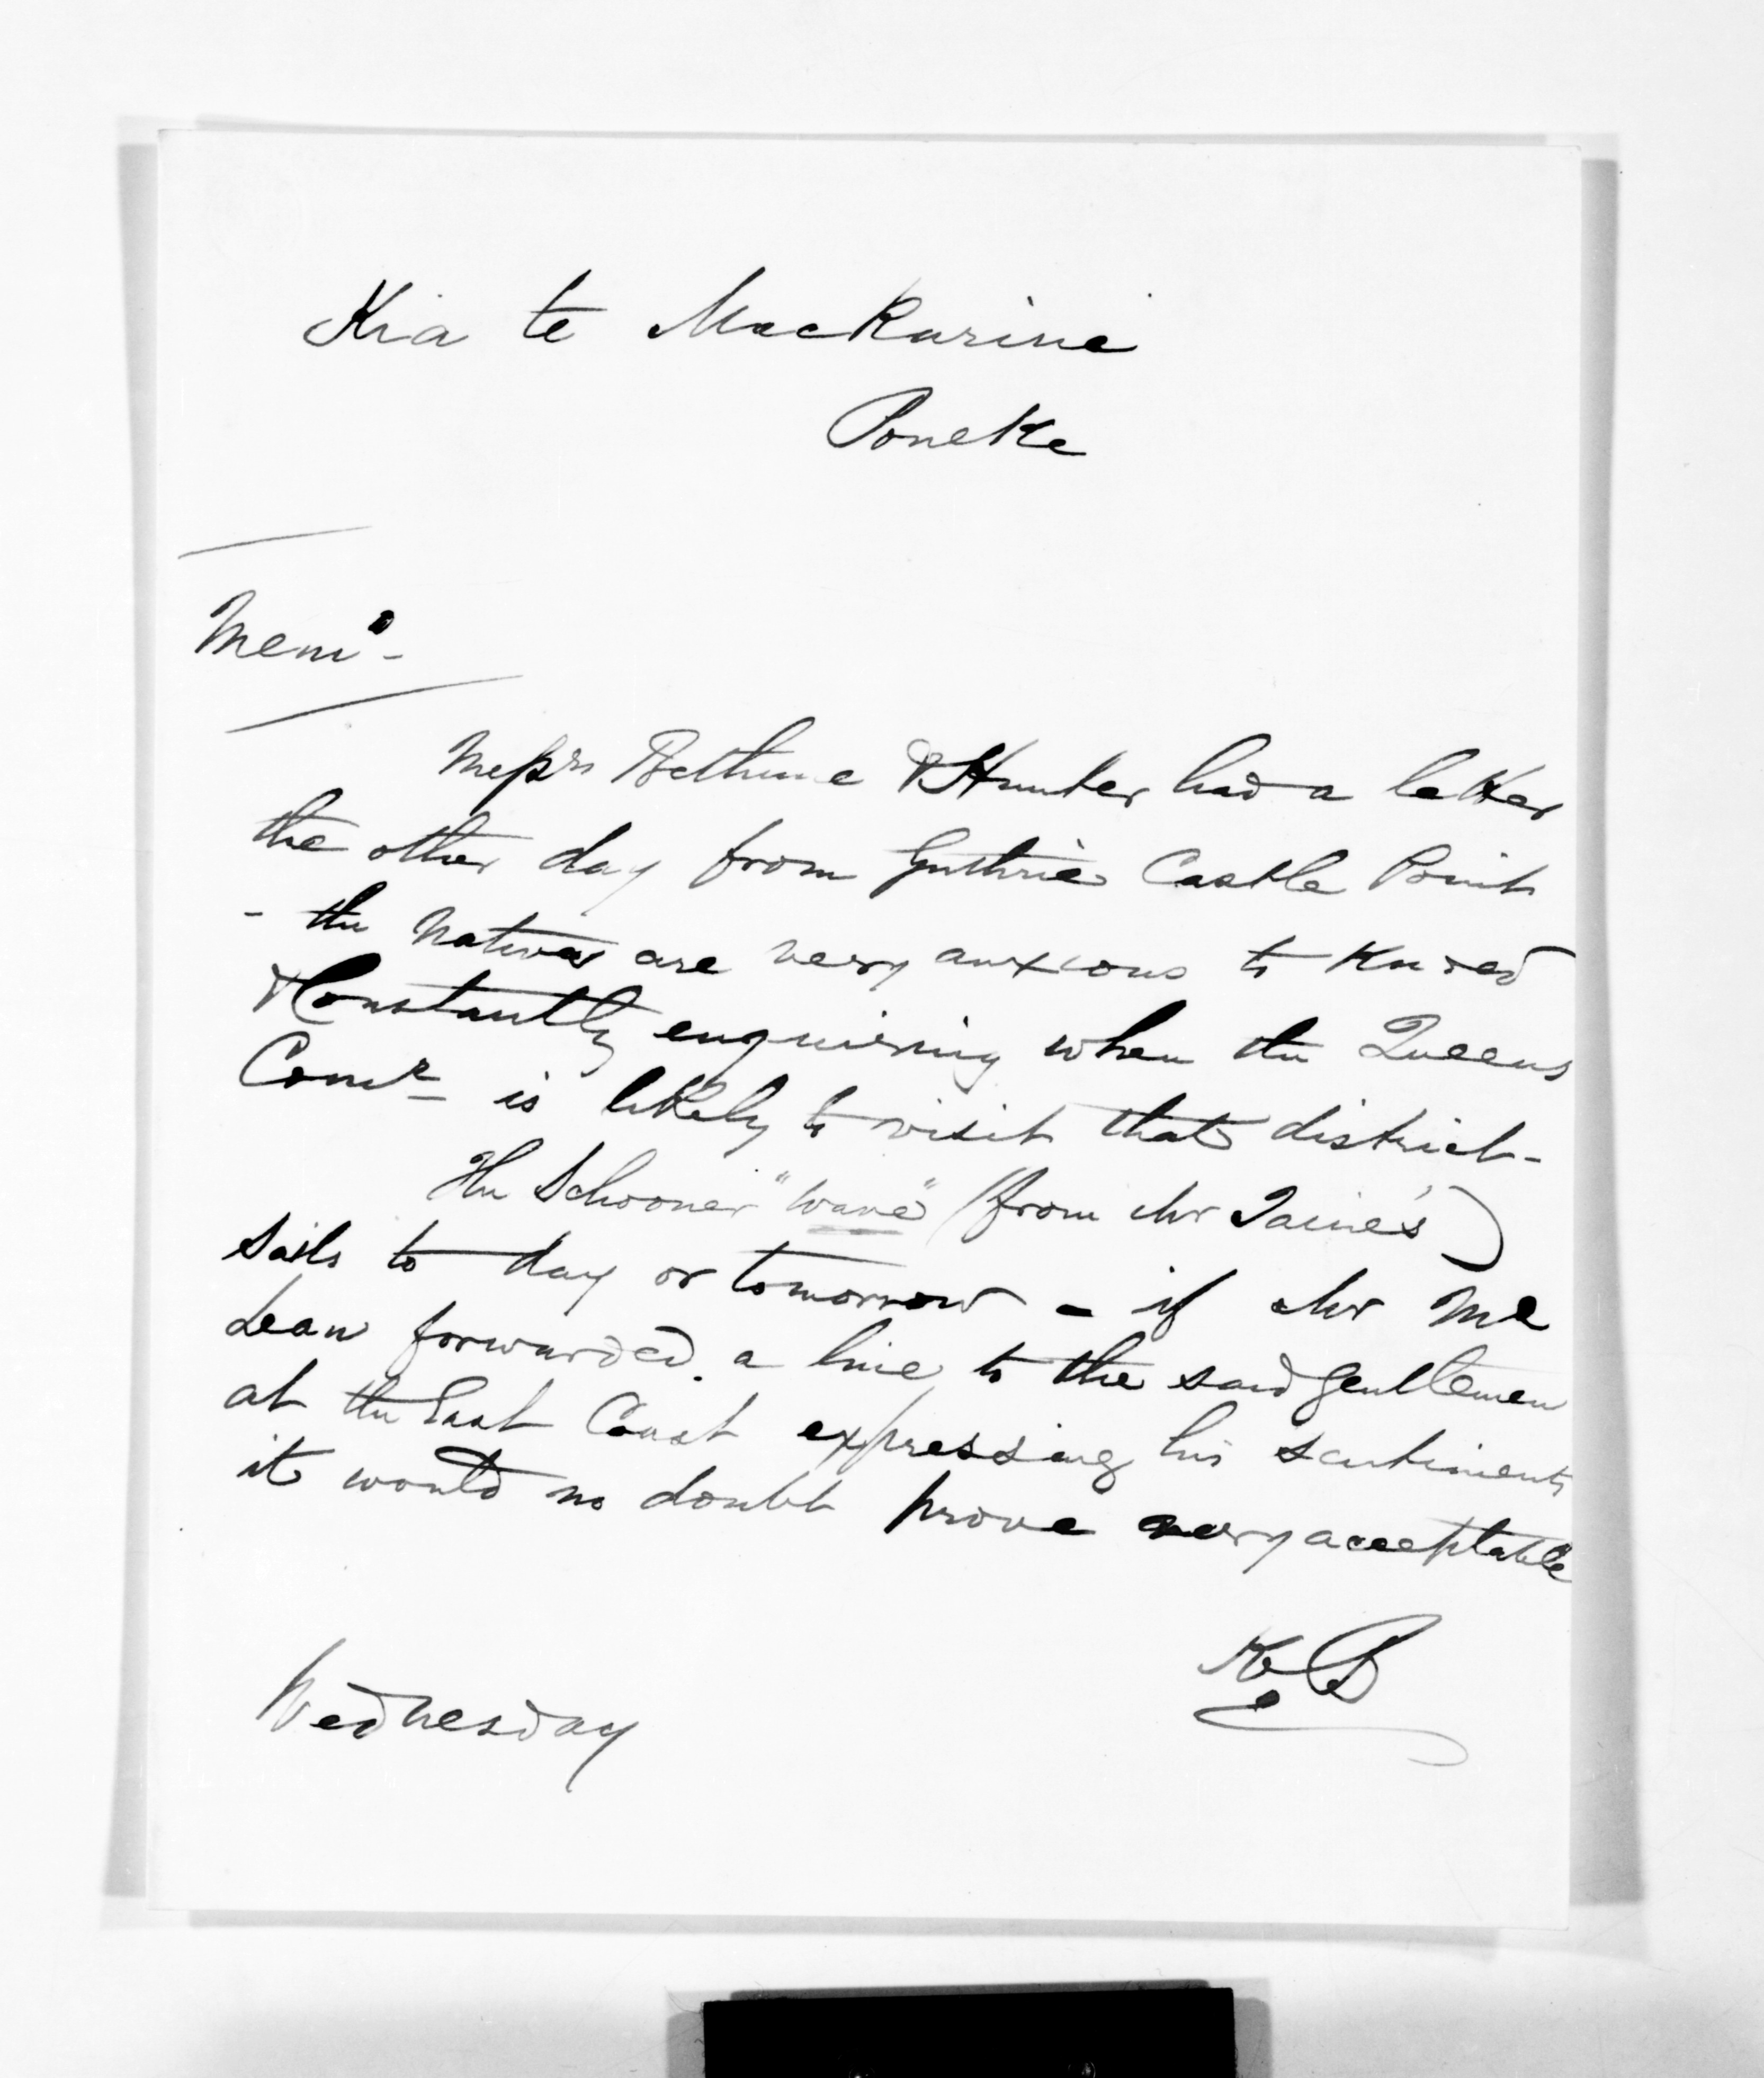 Kia te MacKarine
Poneke
Memo -
Messrs Bethune & Hunter had a letter
the other day from Guthrie Castle Point
- the Natives are very anxious to Know
& Constantly enquiring when the Queens
Comr is likely to visit that district -
The Schooner "Wave" (from Mr Taine's)
sails to day or tomorrow - if Mr Mc
Lean forwarded a line to the said gentlemen
at the East Coast expressing his sentiments
it would no doubt prove very acceptable
Wednesday